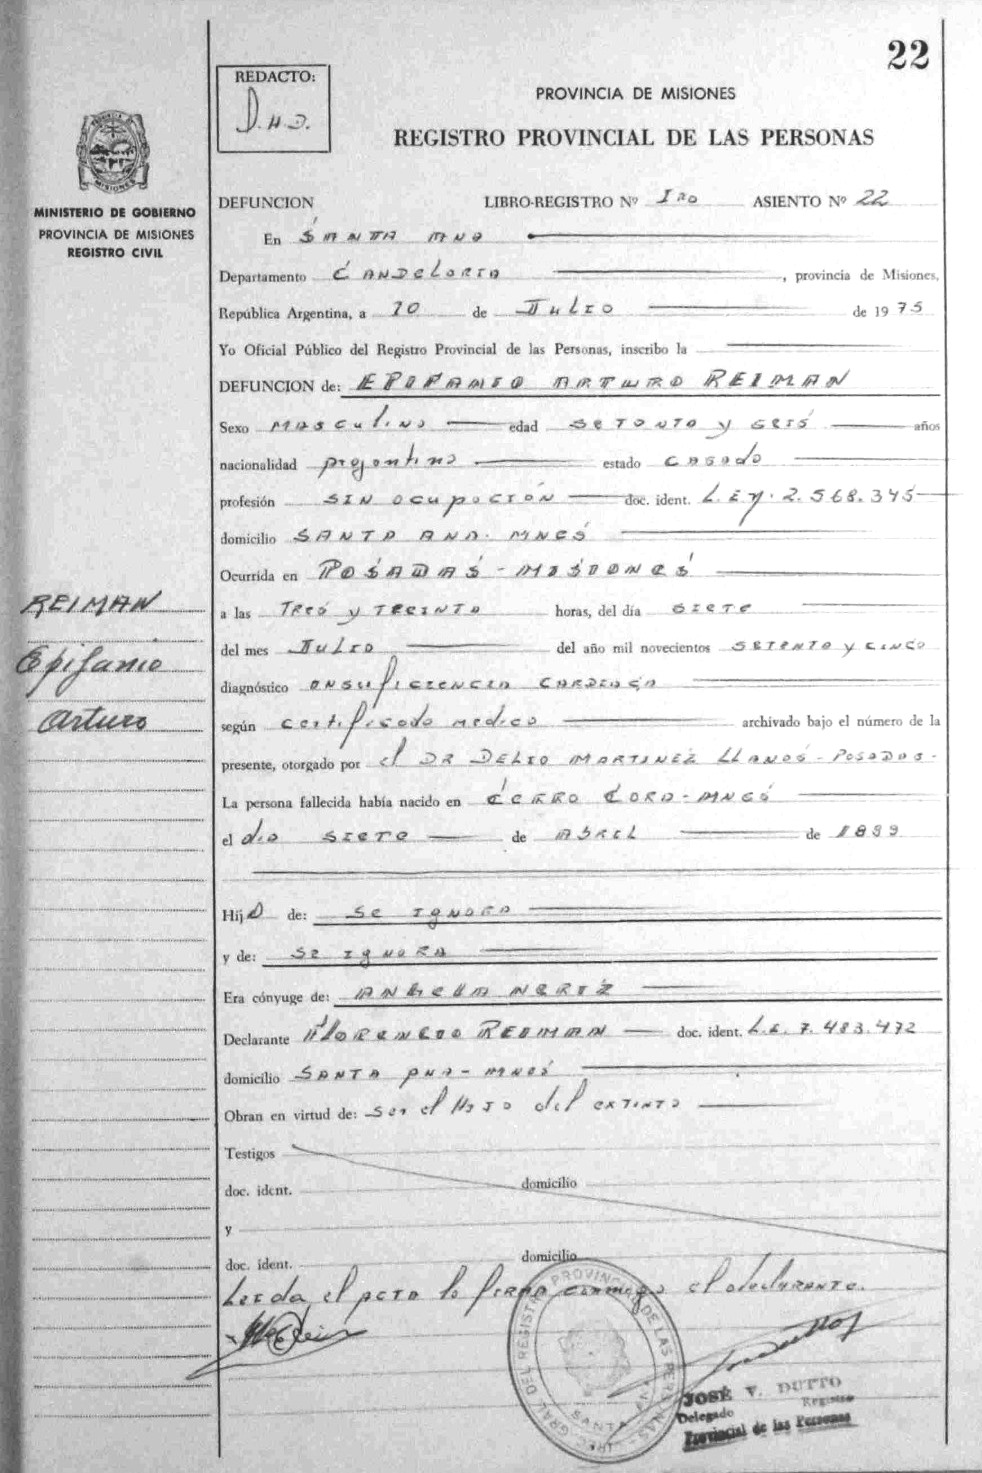 22
REDACTO:
D.H.D.
PROVINCIA DE MISIONES
REGISTRO PROVINCIAL DE LAS PERSONAS
MISIONES
MINISTERIO DE GOBIERNO
PROVINCIA DE MISIONES
REGISTRO CIVIL
DEFUNCION LIBRO-REGISTRO Nº 1ro ASIENTO Nº 22
En SANTA ANA
Departamento CANDELARIA, provincia de Misiones,
República Argentina, a 10 de Julio de 1975
Yo Oficial Público del Registro Provincial de las Personas, inscribo la
DEFUNCION de: EPIFANIO ARTURO REIMAN
Sexo masculino edad setenta y seis años
nacionalidad argentina estado casado
profesión SIN OCUPACIÓN doc. ident. L.E.M. 2.568.345
domicilio SANTA ANA - MNES
Ocurrida en POSADAS - MISIONES
a las Tres y Treinta horas, del día siete
del mes Julio del año mil novecientos setenta y cinco
diagnóstico insuficiencia cardiaca
según certificado medico archivado bajo el número de la
presente, otorgado por el DR DELIO MARTINEZ LLANOS - POSADAS -
La persona fallecida había nacido en CERRO CORA - MNES
el dia siete de ABRIL de 1899
Hijo de: se ignora
y de: se ignora
Era cónyuge de:
Declarante FLORENCIO REIMAN doc. ident. L.E. 7.483.472
domicilio SANTA ANA - MNES
Obran en virtud de: ser el Hijo del extinto
Testigos
doc. ident. domicilio
y
doc. ident. domicilio
Leida el acta la firma conmigo el declarante.
REIMAN
Epifanio
Arturo
JOSÉ V. DUTTO
Delegado Registro
Provincial de las Personas